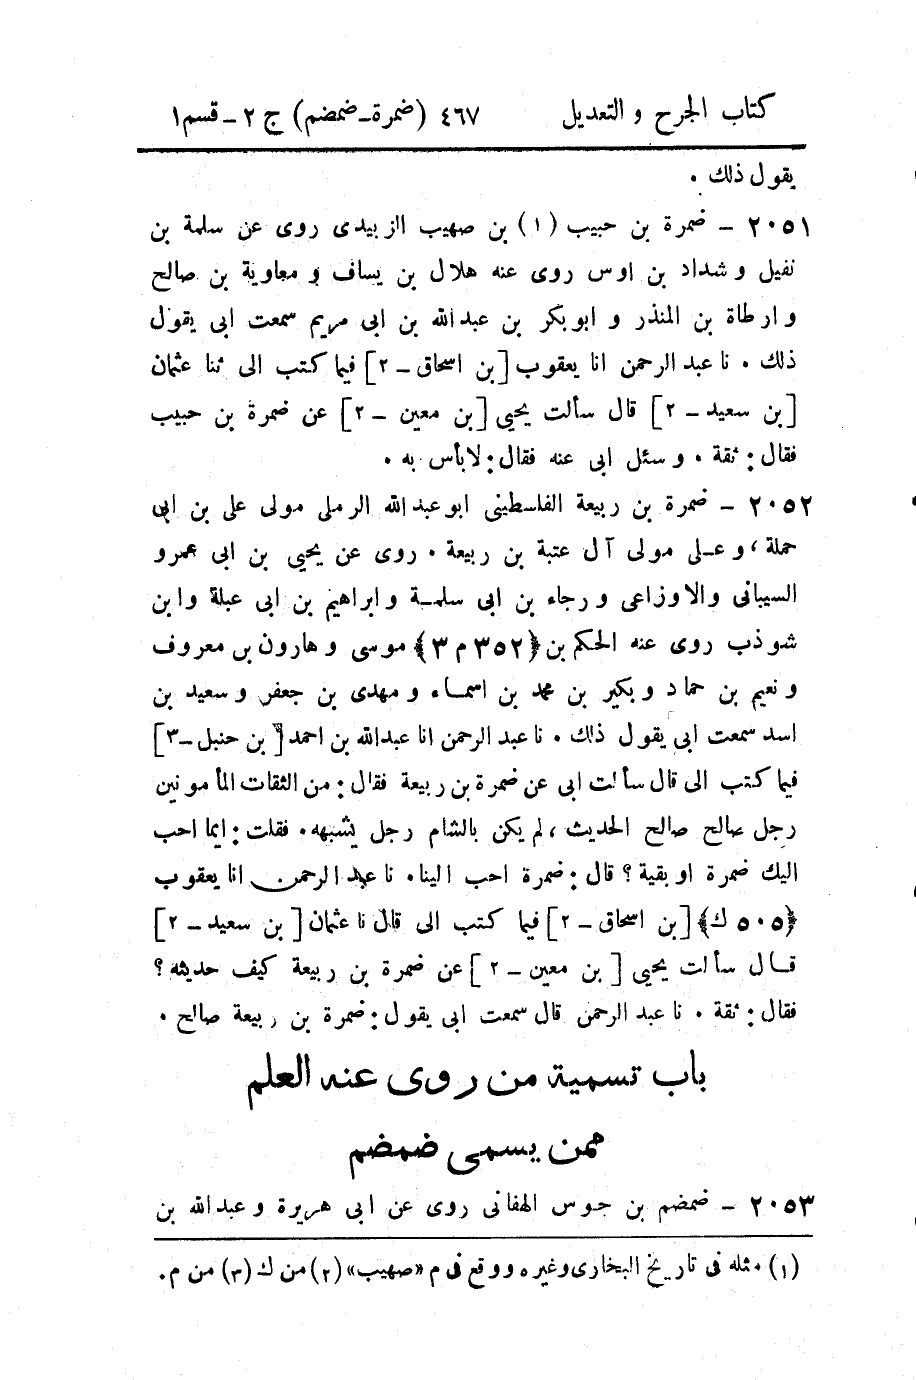 كتاب الجرح و التعديل ٤٦٧ (ضمرة-ضمضم) ج ٢ - قسم ١
يقول ذلك .
٢٠٥١ - ضمرة بن حبيب (١) بن صهيب الزبيدى روى عن سلمة بن
نفيل و شداد بن اوس روى عنه هلال بن يساف و معاوية بن صالح
و ارطاة بن المنذر و ابو بكر بن عبد الله بن ابى مريم سمعت ابى يقول
ذلك . نا عبد الرحمن انا يعقوب [بن اسحاق - ٢] فيما كتب الى ثنا عثمان
[بن سعيد - ٢] قال سألت يحيى [بن معين - ٢] عن ضمرة بن حبيب
فقال: ثقة . و سئل ابى عنه فقال: لا بأس به .
٢٠٥٢ - ضمرة بن ربيعة الفلسطينى ابو عبد الله الرملى مولى على بن ابى
حملة، و على مولى آل عتبة بن ربيعة . روى عن يحيى بن ابى عمرو
السيبانى والاوزاعى و رجاء بن ابى سلمة و ابراهيم بن ابى عبلة وابن
شوذب روى عنه الحكم بن ﴿٣٥٢ م ٣﴾ موسى و هارون بن معروف
و نعيم بن حماد و بكير بن محمد بن اسماء و مهدى بن جعفر و سعيد بن
اسد سمعت ابى يقول ذلك . نا عبد الرحمن انا عبد الله بن احمد [بن حنبل -٣]
فيما كتب الى قال سألت ابى عن ضمرة بن ربيعة فقال: من الثقات المأمونين
رجل صالح صالح الحديث، لم يكن بالشام رجل يشبهه. فقلت: ايما احب
اليك ضمرة او بقية؟ قال: ضمرة احب الينا. نا عبد الرحمن انا يعقوب
﴿٥٠٥ ك﴾ [بن اسحاق - ٢] فيما كتب الى قال نا عثمان [بن سعيد - ٢]
قال سألت يحيى [بن معين - ٢] عن ضمرة بن ربيعة كيف حديثه؟
فقال: ثقة . نا عبد الرحمن قال سمعت ابى يقول: ضمرة بن ربيعة صالح .
باب تسمية من روى عنه العلم
ممن يسمى ضمضم
٢٠٥٣ - ضمضم بن جوس الهفانى روى عن ابى هريرة و عبد الله بن
(١) مثله فى تاريخ البخارى وغيره ووقع فى م «صهيب» (٢) من ك (٣) من م.